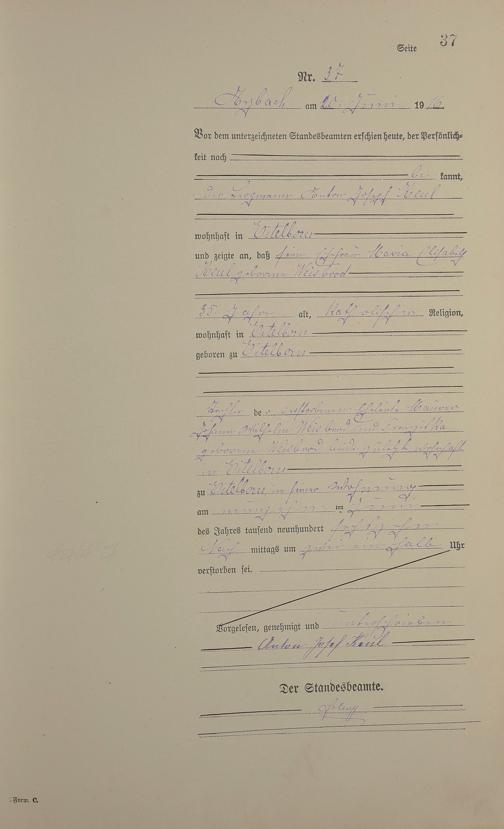 Seite 37
Nr. 37
Arzbach am 20. Juni 1916
Vor dem unterzeichneten Standesbeamten erschien heute, der Persönlich-
keit nach
be kannt,
der Bergmann Anton Josef Keul
wohnhaft in Eitelborn
und zeigte an, daß seine Ehefrau Maria Elisabeth
Keul geborene Weisbrod
35 Jahre alt, katholischer Religion,
wohnhaft in Eitelborn
geboren zu Eitelborn
Tochter der verstorbenen Eheleute Maurer
Johann Wilhelm Weisbrod und
geborene Weisbrod beide zuletzt wohnhaft
in Eitelborn
zu Eitelborn in seiner Wohnung
am neunzehnten Juni
des Jahres tausend neunhundert sechszehn
Nach mittags um ein halb Uhr
verstorben sei.
Vorgelesen, genehmigt und unterschrieben
Anton Josef Keul
Der Standesbeamte.
Form. C.